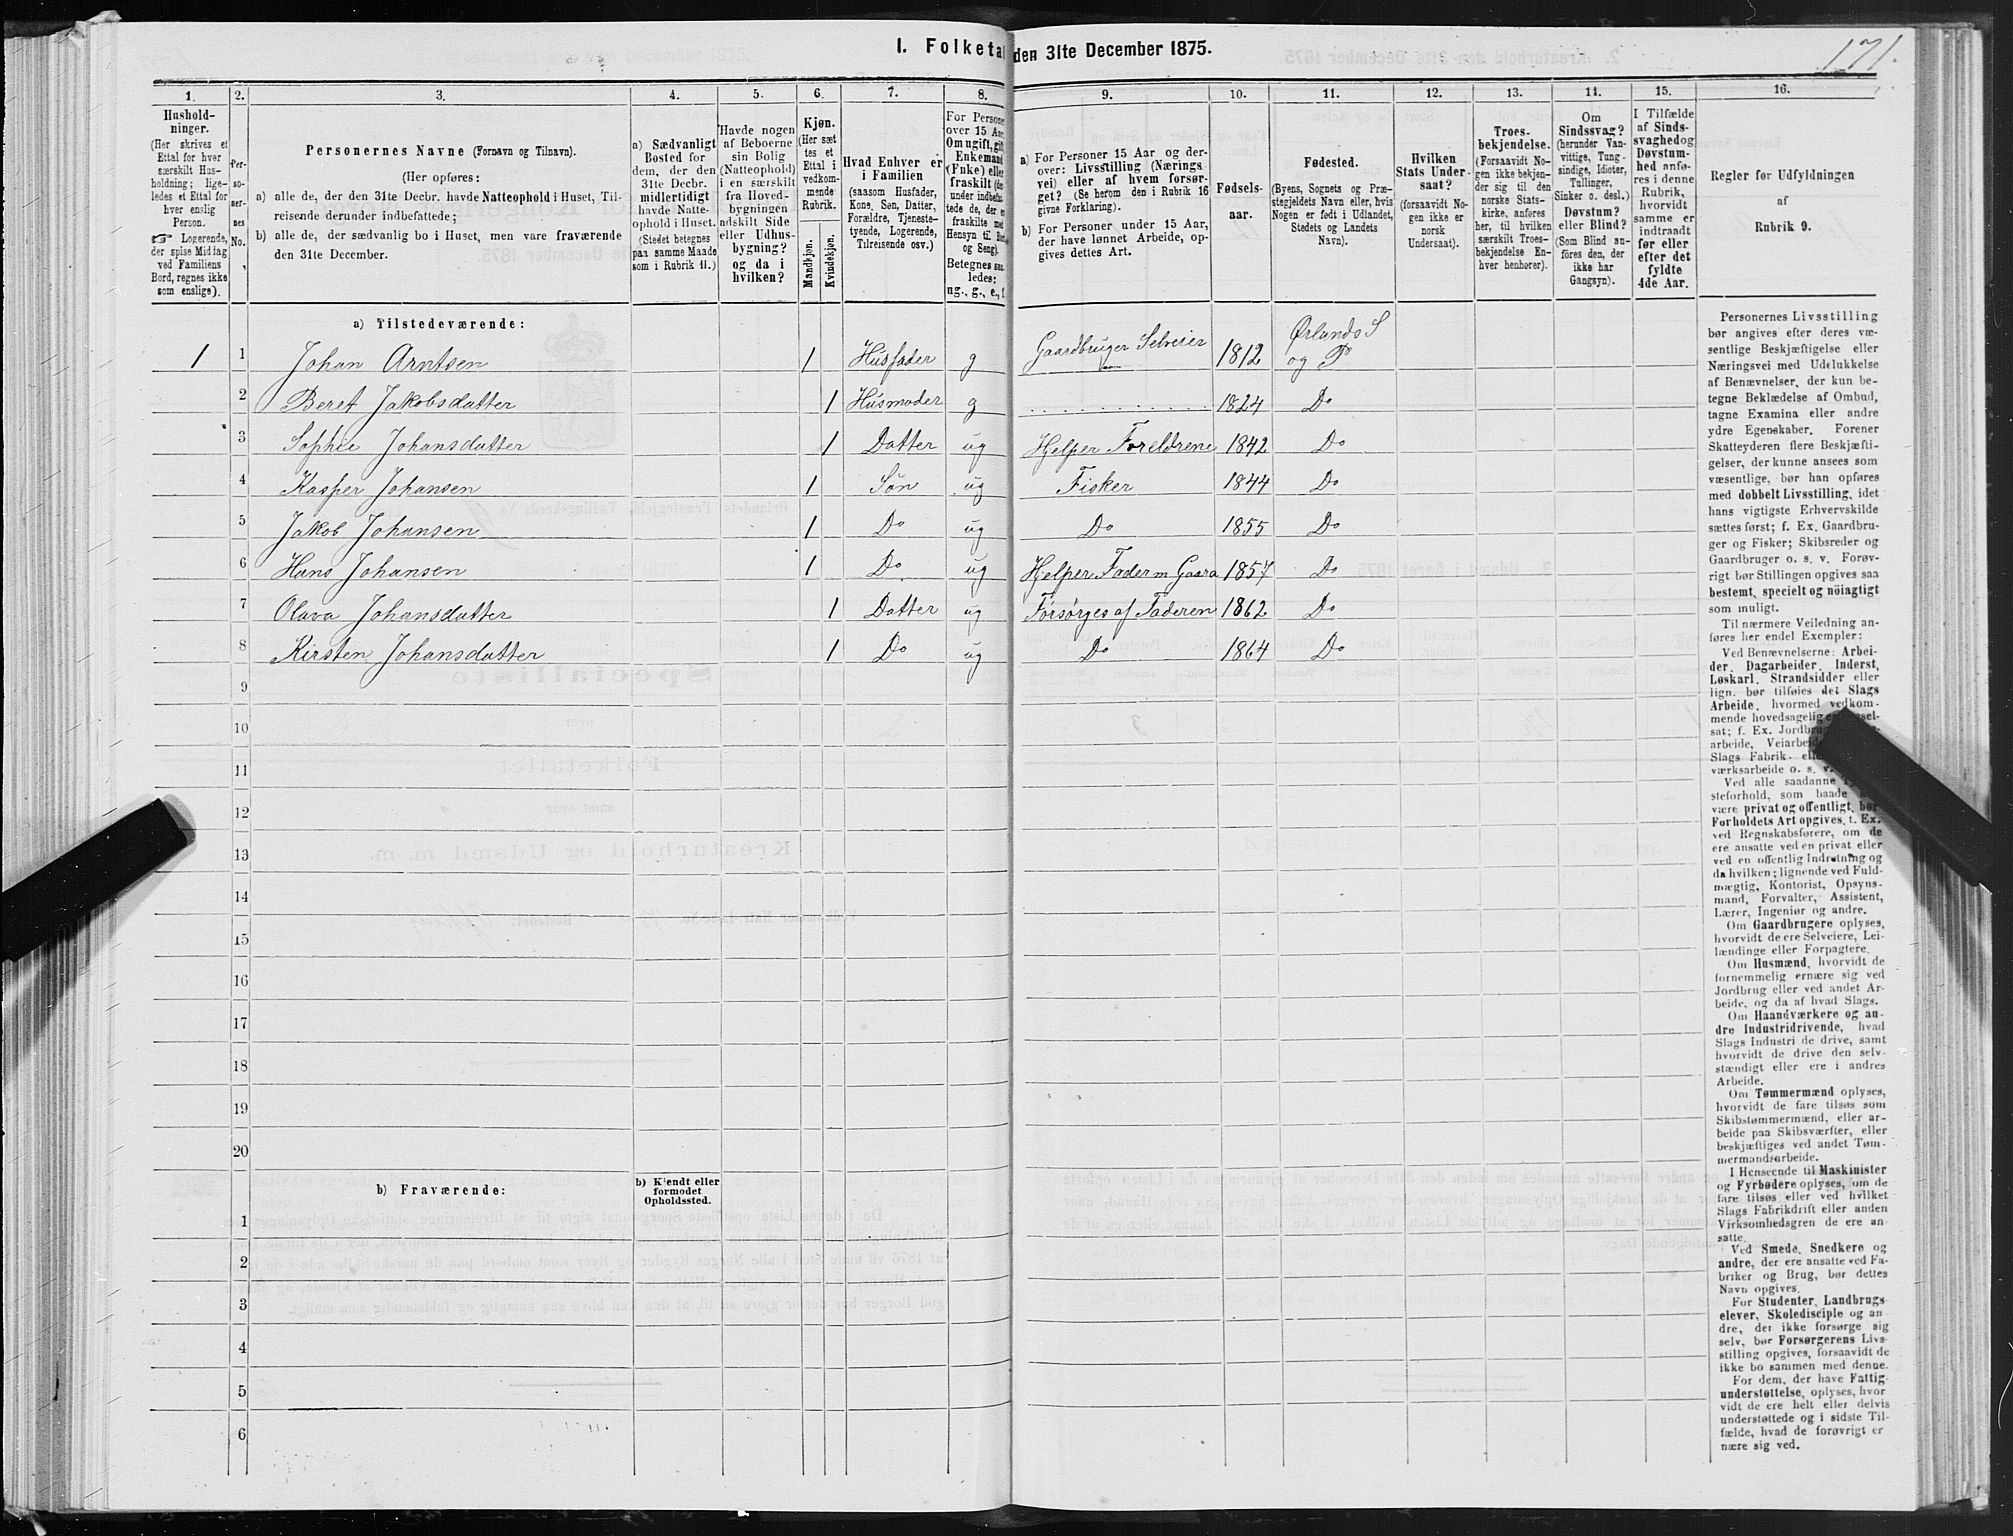 I. Folketal den 31te December 1875.
171.
1.
Hushold-
ninger.
(Her skrives et
Ettal for hver
særskilt Hus-
holdning; lige-
ledes et Ettal for
hver enslig
Person.
☞ Logerende,
der spise Middag
ved Familiens
Bord, regnes ikke
som enslige).
2.
Per-
so-
ner-
nes
No.
3.
Personernes Navne (Fornavn og Tilnavn).
(Her opføres:
a) alle de, der den 31te Decbr. havde Natteophold i Huset, Til-
reisende derunder indbefattede;
b) alle de, der sædvanlig bo i Huset, men vare fraværende
den 31te December.
4.
a) Sædvanligt
Bosted for
dem, der den
31te Decbr.
midlertidigt
havde Natte-
ophold i Huset.
(Stedet betegnes
paa samme Maade
som i Rubrik 11.)
5.
Havde nogen
af Beboerne
sin Bolig
(Natteophold)
i en særskilt
fra Hoved-
bygningen
adskilt Side
eller Udhus-
bygning?
og da i
hvilken?
6.
Kjøn.
(Her sæt
tes et
Ettal i
vedkom-
mende
Rubrik.
Mandkjøn.
Kvindekjøn.
7.
Hvad Enhver er
i Familien
(saasom Husfader,
Kone, Søn, Datter,
Forældre, Tjeneste-
tyende, Logerende,
Tilreisende osv.)
8.
For Persone
over 15 Aar
Om ugift, gift
Enkemand
(Enke) eller
fraskilt (de
under indbefat-
tede de, der e
fraskilte med
Hensyn til Bor
og Seng).
Betegnes saa
ledes:
ug., g., e., f.
9.
a) For Personer 15 Aar og der-
over: Livsstilling (Nærings
vei) eller af hvem forsør-
get? (Se herom den i Rubrik 16
givne Forklaring).
b) For Personer under 15 Aar,
der have lønnet Arbeide, op-
gives dettes Art.
10.
Fødsels-
aar.
11.
Fødested.
(Byens, Sognets og Præ-
stegjeldets Navn eller, hvis
Nogen er født i Udlandet,
Stedets og Landets
Navn).
12.
Hvilken
Stats Under-
saat?
(forsaavidt No-
gen ikke er
norsk
Undersaat).
13.
Troes-
bekjendelse.
(Forsaavidt No-
gen ikke bekjen-
der sig til den
norske Stats-
kirke, anføres
her, til hvilken
særskilt Troes-
bekjendelse En-
hver henhører).
14.
Om
Sindssvag?
(herunder Van-
vittige, Tung-
sindige, Idioter,
Tullinger,
Sinker o. desl.)
Døvstum?
eller Blind?
(Som Blind an-
føres den, der
ikke har
Gangsyn).
15.
I Tilfælde
af Sinds-
svaghed og
Døvstum-
hed anfø-
res i denne
Rubrik,
hvorvidt
samme er
indtraadt
før eller
efter det
fyldte
4de Aar.
16.
Regler for Udfyldningen
af
Rubrik 9.
a) Tilstedeværende:
1 1 Johan Arntsen 1 Husfader g Gaardbruger Selveier 1812 Ørlands S og P
2 Beret Jakobsdatter 1 Husmoder g . . . . . . . . . . . . 1824 Do
3 Sophie Johansdatter 1 Datter ug Hjelper Foreldrene 1842 Do
4 Kasper Johansen 1 Søn ug Fisker 1844 Do
5 Jakob Johansen 1 Do ug Do 1855 Do
6 Hans Johansen 1 Do ug Hjelper Fader m Gaara 1857 Do
7 Olava Johansdatter 1 Datter ug Forsørges af Faderen 1862 Do
8 Kirsten Johansdatter 1 Do ug Do 1864 Do
9
10
11
12
13
14
15
16
17
18
19
20
b) Fraværende:
b) Kjendt eller
formodet
Opholdssted.
1
2
3
4
5
6
Personernes Livsstilling
bør angives efter deres væ-
sentlige Beskjæftigelse eller
Næringsvei med Udelukkelse
af Benævnelser, der kun be-
tegne Beklædelse af Ombud,
tagne Examina eller andre
ydre Egenskaber. Forener
Skatteyderen flere Beskjæfti-
gelser, der kunne ansees som
væsentlige, bør han opføres
med dobbelt Livsstilling, idet
hans vigtigste Erhvervskilde
sættes først; f. Ex. Gaardbru-
ger og Fisker; Skibsreder og
Gaardbruger o. s. v. Forøv-
rigt bør Stillingen opgives saa
bestemt, specielt og nöiagtigt
som muligt.
Til nærmere Veiledning an-
føres her endel Exempler:
Ved Benævnelserne: Arbei-
der, Dagarbeider, Inderst,
Løskarl, Strandsidder eller
lign. bør tilføies det Slags
Arbeide, hvormed vedkom-
mende hovedsagelig
sat; f. Ex.
arbeide,
Slags Fabrik-
værksarbeide o. s. v.
Ved alle saadanne
steforhold, som baade
være privat og offentligt, bør
Forholdets Art opgives, t. Ex.
ved Regnskabsførere, om de
ere ansatte ved en privat eller
ved en offentlig Indretning og
da hvilken; lignende ved Fuld-
mægtig, Kontorist, Opsyns-
mand, Forvalter, Assistent,
Lærer, Ingeniør og andre.
Om Gaardbrugere oplyses,
hvorvidt de ere Selveiere, Lei-
lændinge eller Forpagtere.
Om Husmænd, hvorvidt de
fornemmelig ernære sig ved
Jordbrug eller ved andet Ar-
beide, og da af hvad Slags.
Om Haandværkere og an-
dre Industridrivende, hvad
Slags Industri de drive, samt
hvorvidt de drive den selv-
stændigt eller ere i andres
Arbeide.
Om Tømmermænd oplyses,
hvorvidt de fare tilsøs som
Skibstømmermænd, eller ar-
beide paa Skibsværfter, eller
beskjæftiges ved andet Tøm-
mermandsarbeide.
I Henseende til Maskinister
og Fyrbødere oplyses, om de
fare tilsøs eller ved hvilket
Slags Fabrikdrift eller anden
Virksomhedsgren de ere an-
satte.
Ved Smede, Snedkere og
andre, der ere ansatte ved Fa-
briker og Brug, bør dettes
Navn opgives.
For Studenter, Landbrugs-
elever, Skoledisciple og an-
dre, der ikke forsørge sig
selv, bør Forsørgerens Livs-
stilling opgives, forsaavidt de
ikke bo sammen med denne.
For dem, der have Fattig-
understøttelse, oplyses, hvor
vidt de ere helt eller delvis
understøttede og i sidste Til-
fælde, hvad de forøvrigt er
nære sig ved.